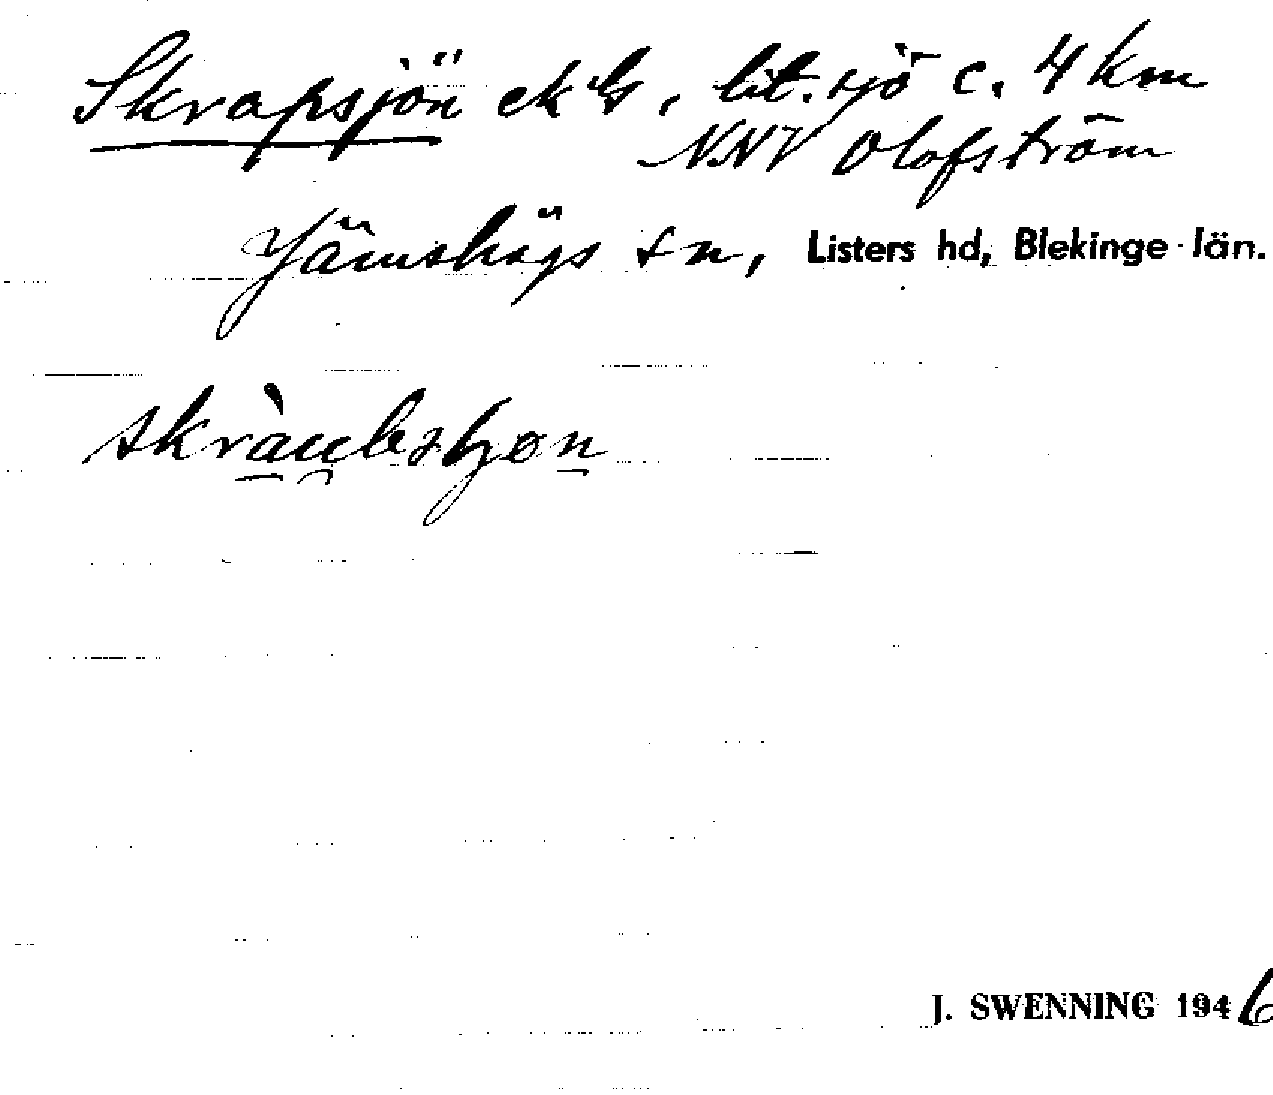 Skrapsjön ek bl, lit. sjö c. 4 km
NNV Olofström
Jämshögs sn, Listers hd, Blekinge län.
skràu̯bsʃøn
J. SWENNING 1946